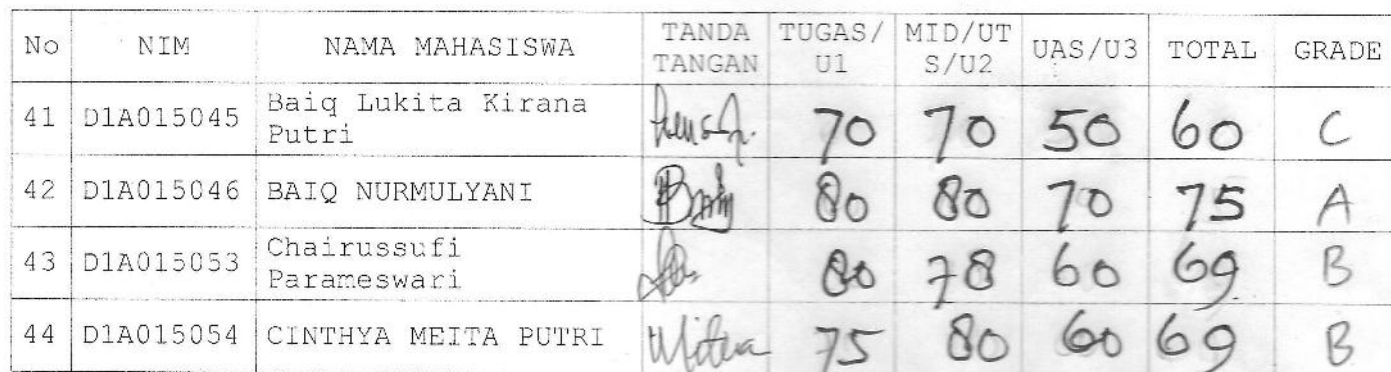 No NIM NAMA MAHASISWA TANDA TANGAN TUGAS/ U1 MID/UT S/U2 UAS/U3 TOTAL GRADE
41 D1A015045 Baiq Lukita Kirana Putri 70 70 50 60 C
42 D1A015046 BAIQ NURMULYANI 80 80 70 75 A
43 D1A015053 Chairussufi Parameswari 80 78 60 69 B
44 D1A015054 CINTHYA MEITA PUTRI 75 80 60 69 B